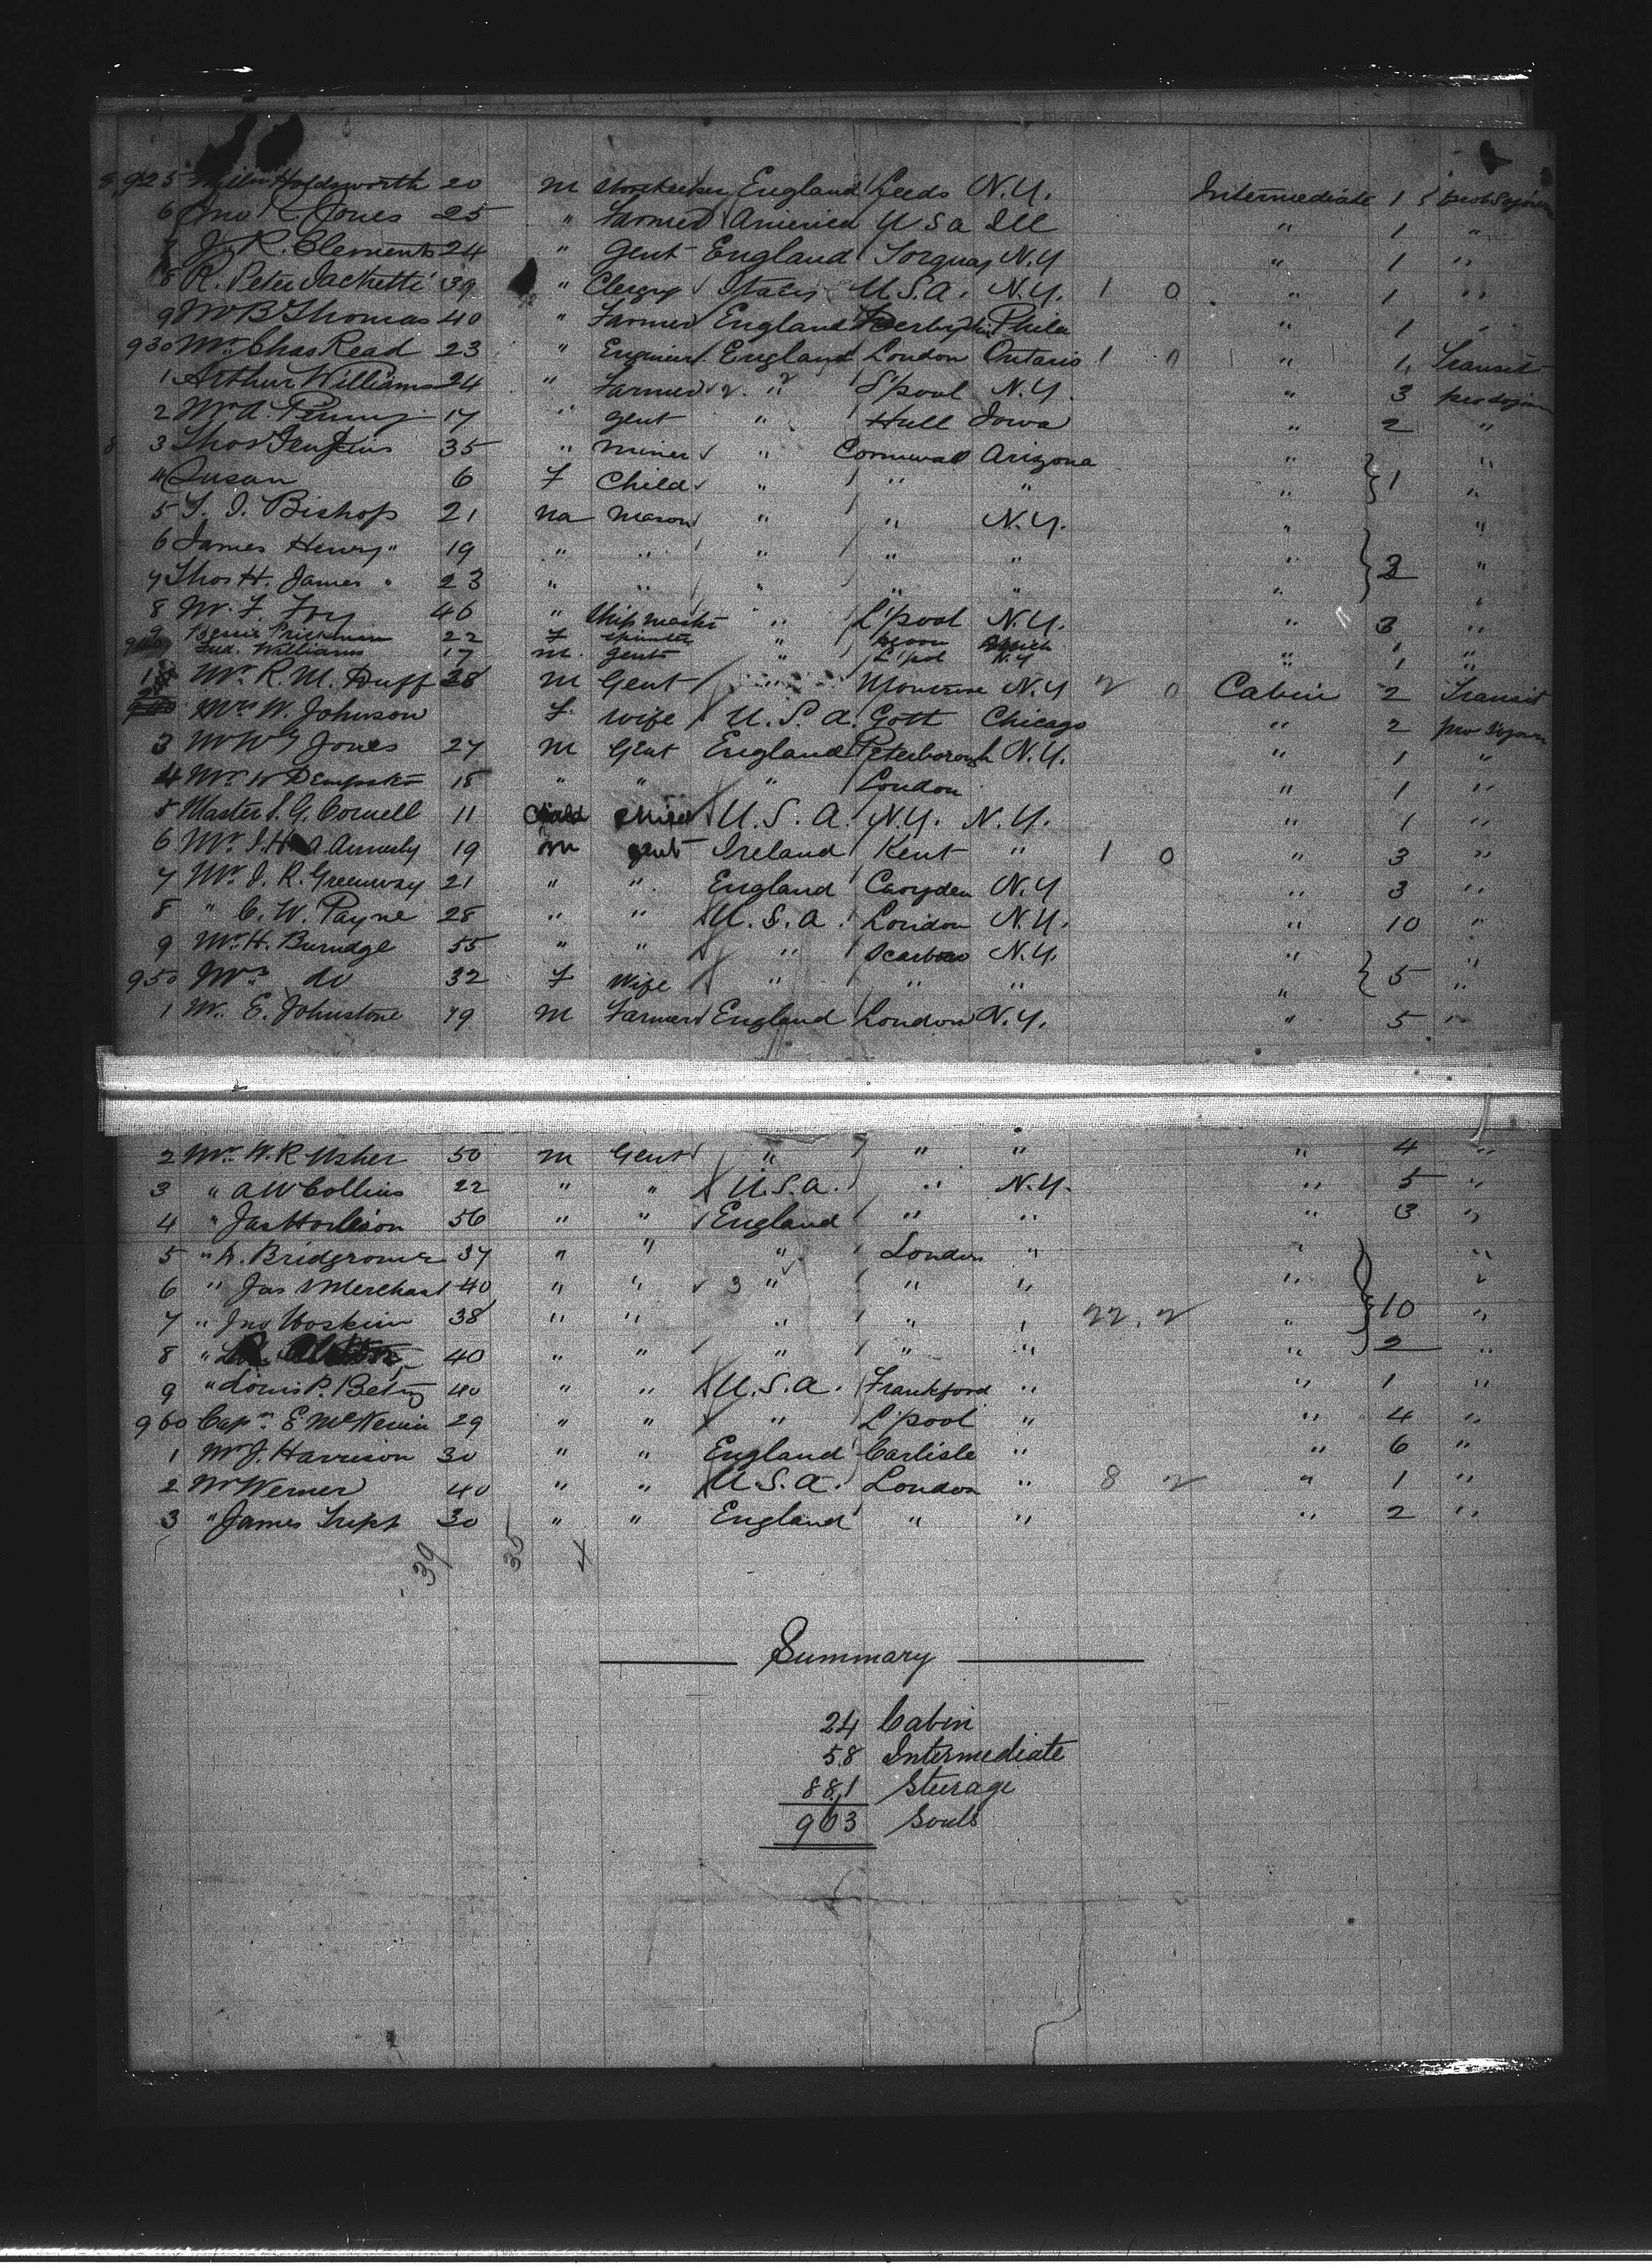 925 Holdsworth 20 m Storekeeper England Leeds N.Y. Intermediate 1
6 Jno R. Jones 25 " Farmer America U S a Ill " 1 "
J. R. Clements 24 " Gent England Torquay N.Y " 1 "
8 R. Peter 39 " Clergy States U.S.A. N.Y. 1 0 " 1 "
9 Mr B Thomas 40 " Farmer England Phila " 1 "
930 Mr. Chas Read 23 " Engineer England London Ontario 1 0 " 1 Transit
1 Arthur Williams 24 " Farmer " L'pool N.Y. " 3
2 Mr A. Penny 17 " Gent " Hull Iowa " 2 "
3 Thos Jenkins 35 " Miner " Cornwall Arizona " "
4 Susan 6 F Child " " " " 1 "
5 T. J. Bishop 21 Mason " " N.Y. " "
6 James Henry " 19 " " " " " " "
7 Thos H. James " 23 " " " " "
8 W. F. Fry 46 " " L'pool N.Y. " 3 "
9 Bessie 22 F Spinster " " 1 "
Fred. Williams 17 m. gent " L'pool N.Y " 1 "
1 Mr. R. M. Duff 28 m Gent " Montrose N.Y 2 0 Cabin 2 Transit
Mrs W. Johnson F. wife U.S.a. Gott Chicago " 2
3 Jones 27 m Gent England Peterborough N.Y. " 1 "
4 Mr. W Dempster 18 " " " London " 1 "
5 Master S. G. Cornell 11 Child Child U.S.A. N.Y. N.Y. " 1 "
6 Mr. 19 m gent Ireland Kent " 1 0 " 3 "
7 Mr. J. R. Greenway 21 " " England Croyden N.Y " 3 "
8 " C. W. Payne 28 " " U.S.a. London N.Y. " 10 "
9 Mr. H. Burndge 55 " " " Scarboro N.Y. " "
950 Mrs do 32 F Wife " " " " 5 "
1 Mr. E. Johnstone 19 m Farmer England London N.Y. " 5 "
2 Mr. W. R Usher 50 m Gent " " " " 4 "
3 " A W Collins 22 " " U.S.a. " N.Y. " 5 "
4 " Jas 56 " " England " " " 3 "
5 " 37 " " " London " " "
6 " Jas Merchant 40 " " 3 " " " " "
7 " Jno Hoskin 38 " " " " " 22. 2 " 10 "
8 " 40 " " " " " " 2 "
9 " Louis P. 40 " " U.S.a. Frankford " " 1 "
960 Capn. E 29 " " " L'pool " " 4 "
1 Mr J. Harrison 30 " " England Carlisle " " 6 "
2 Mr Werner 40 " " U.S.a. London " 8 2 " 1 "
3 " James Tripp 30 " " England " " " 2 "
39 35 4
Summary
24 Cabin
58 Intermediate
881 Steerage
963 Souls